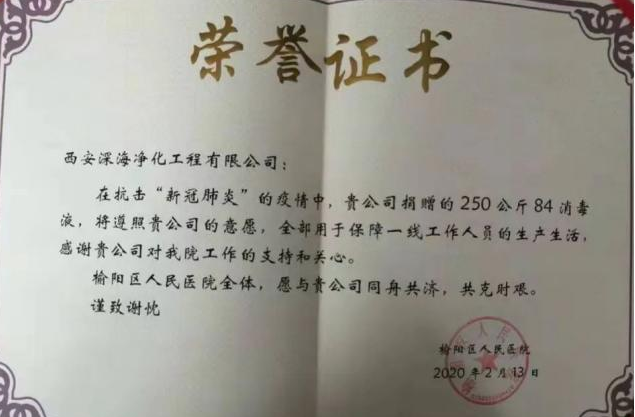 荣誉证书
西安深海净化工程有限公司：
在抗击“新冠肺炎”的疫情中，贵公司捐赠的250公斤84消毒
液，将遵照贵公司的意愿，全部用于保障一线工作人员的生产生活，
感谢贵公司对我院工作的支持和关心。
榆阳区人民医院全体，愿与贵公司同舟共济，共克时艰。
谨致谢忱
榆阳区人民医院
2020年2月13日